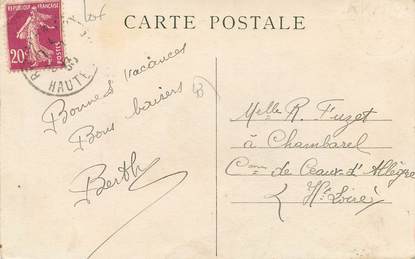 CARTE POSTALE
REPUBLIQUE FRANÇAISE
20c
POSTES
HAUTE
Bonnes vacances
Bons baisers
Berthe
Melle R. Fuzet
à Chambarel
Cne de Ceaux-d'Allègre
Hte Loire